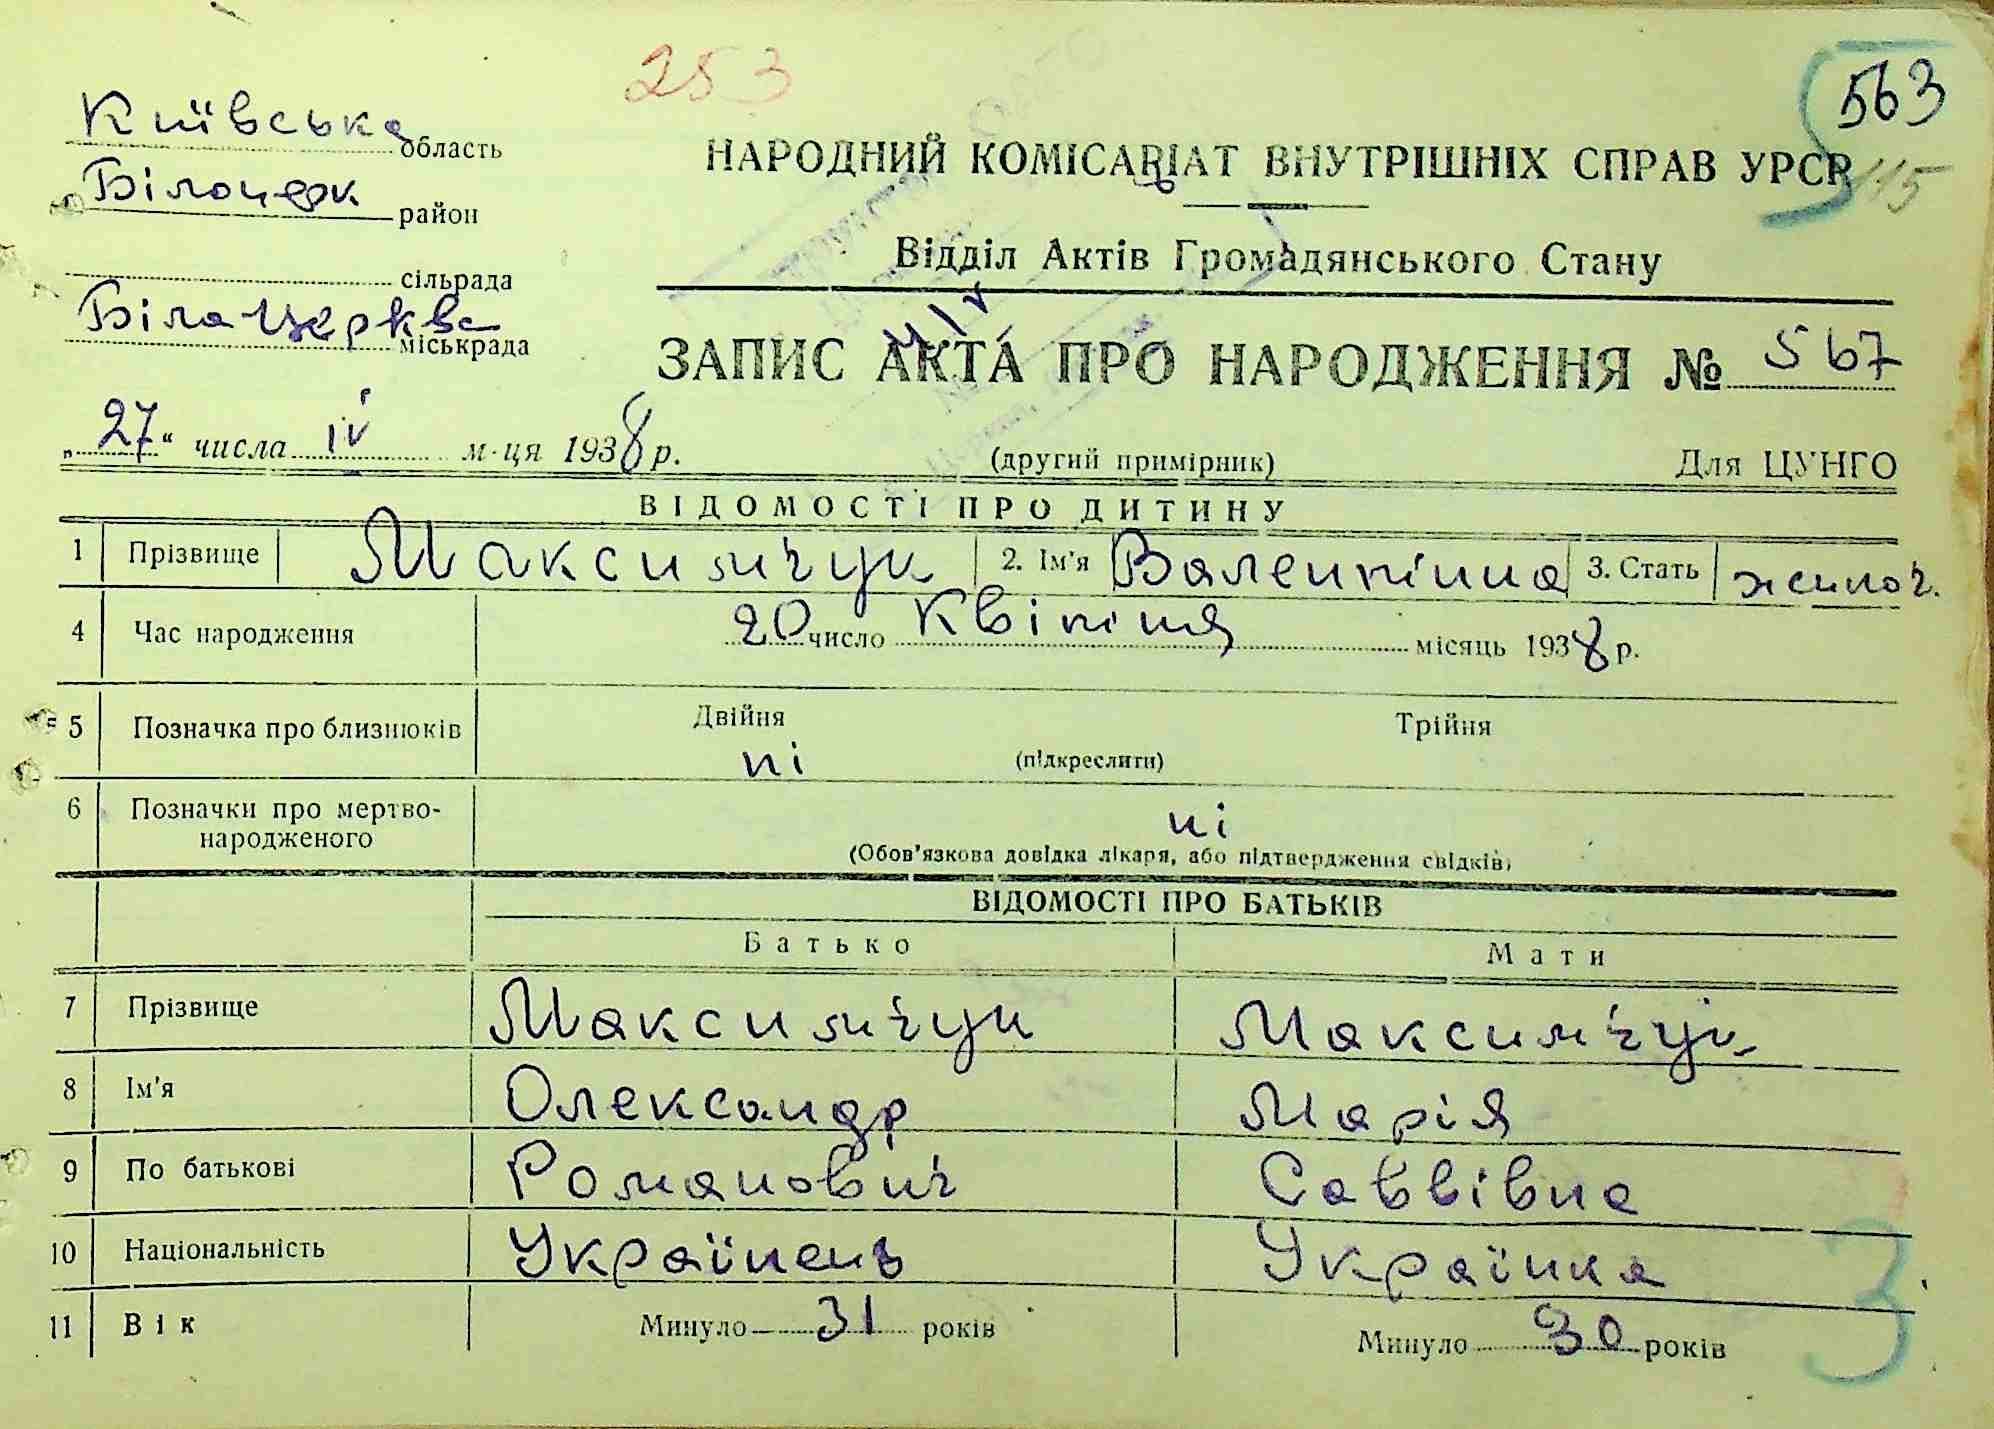 253
563
115
Київська область
Білоцерк район
сільрада
Біла Церква міськрада
НАРОДНИЙ КОМІСАРІАТ ВНУТРІШНІХ СПРАВ УРСР
Відділ Актів Громадянського Стану
ЗАПИС АКТА ПРО НАРОДЖЕННЯ № 567
„27“ числа IV м-ця 1938 р.
(другий примірник)
Для ЦУНГО
ВІДОМОСТІ ПРО ДИТИНУ
1 Прізвище Максимчук 2. Ім'я Валентина 3. Стать жіноч.
4 Час народження 20 число Квітня місяць 1938 р.
5 Позначка про близнюків Двійня Трійня
ні (підкреслити)
6 Позначки про мертво-
народженого ні
(Обов'язкова довідка лікаря, або підтвердження свідків)
ВІДОМОСТІ ПРО БАТЬКІВ
Батько Мати
7 Прізвище Максимчук Максимчук
8 Ім'я Олександр Марія
9 По батькові Романович Саввівна
10 Національність Українець Українка
11 Вік Минуло 31 років Минуло 30 років
3